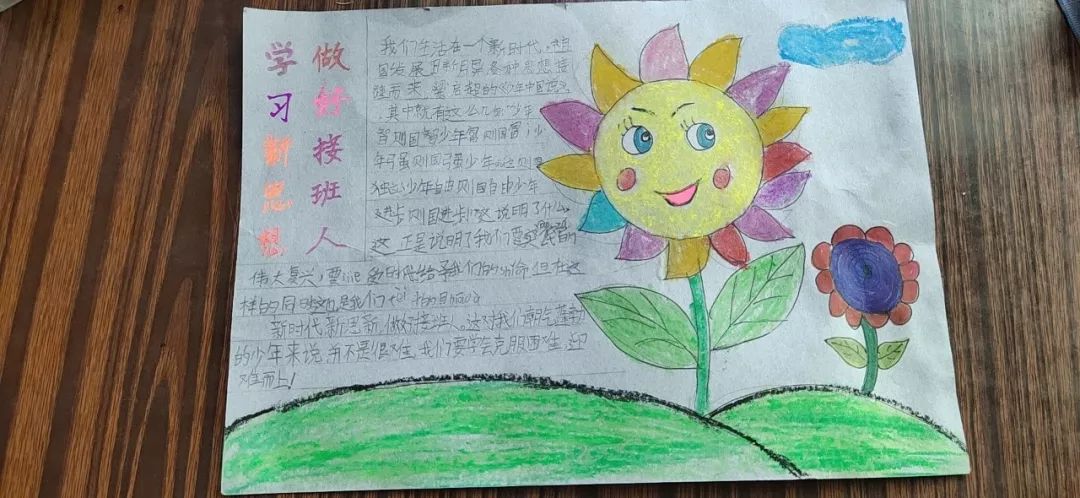 学习新思想
做好接班人
我们生活在一个新时代，祖
国发展日新月异各种思想接
踵而来，梁启超的《少年中国说》
，其中就有这么几句“少年
智则国智少年智则国智；少
年强则国强少年独立则国
独立少年自由则国自由少年
进步则国进步”这说明了什么
这正是说明了我们要实
伟大复兴，要 时代给予我们的 但在这
样的同时这也是我们
新时代，新思想，做好接班人。这对我们朝气蓬勃
的少年来说，并不是很难，我们要学会克服困难，迎
难而上！